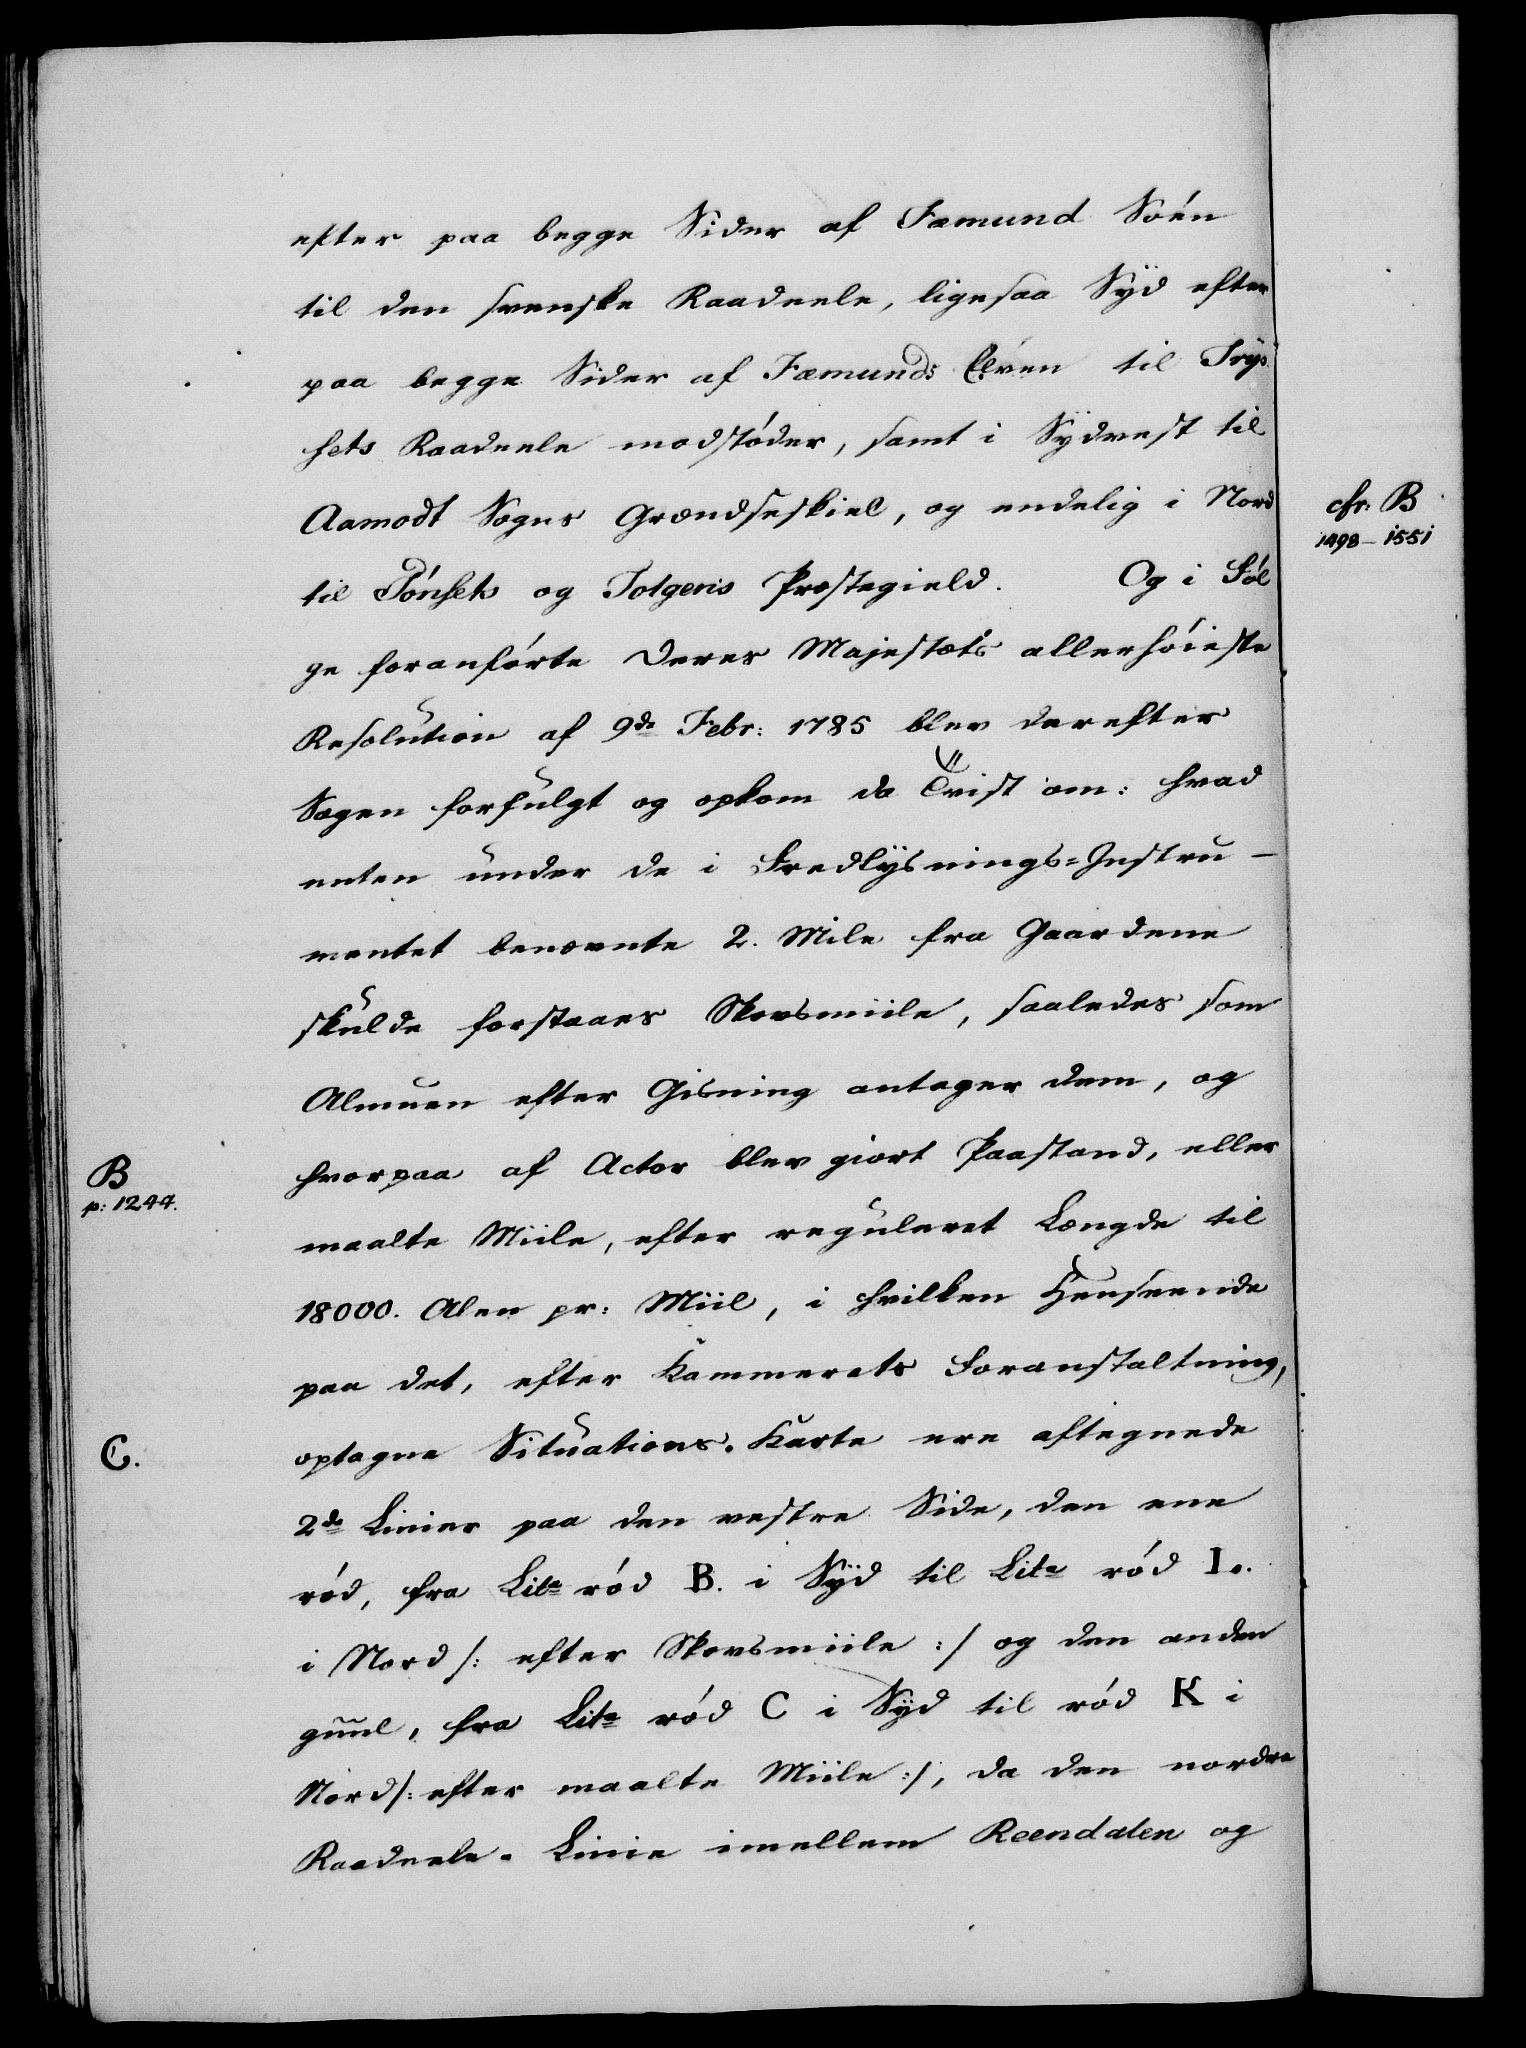 efter paa begge Sider af Fæmund Söén
til den svenske Raadeele, ligesaa Syd efter
paa begge Sider af Fæmunds Elven til Trys
sets Raadeele modstöder, samt i Sydvest til
Aamodt Sogns Grændseskiel, og endelig i Nord
cfr: B
1498 - 1551
til Tönsets og Tolgens Præstegield. Og i Föl
ge foranförte Deres Majestæts allerhöieste
Resolution af 9de Febr: 1785 blev derefter
Sagen forfulgt og opkom da Tvist om: hvad
enten under de i Fredlysnings-Instru-
mentet benævnte 2. Mile fra Gaardene
skulde forstaaes Skovsmiile, saaledes som
Almuen efter Gisning antager dem, og
B
p: 1244.
hvorpaa af Actor blev giort Paastand, eller
maalte Miile, efter reguleret Længde til
18000. Alen pr: Miil, i hvilken Henseende
paa det, efter Kammerets Foranstaltning,
C.
optagne Situations-Karte ere aftegnede
2de Linier paa den vestre Side, den ene
röd, fra Lita röd B. i Syd til Lita röd I.
i Nord /: efter Skovsmiile :/ og den anden
guul, fra Lita röd C i Syd til röd K i
Nord /: efter maalte Miile :/, da den nordre
Raadeele-Linie imellem Reendalen og